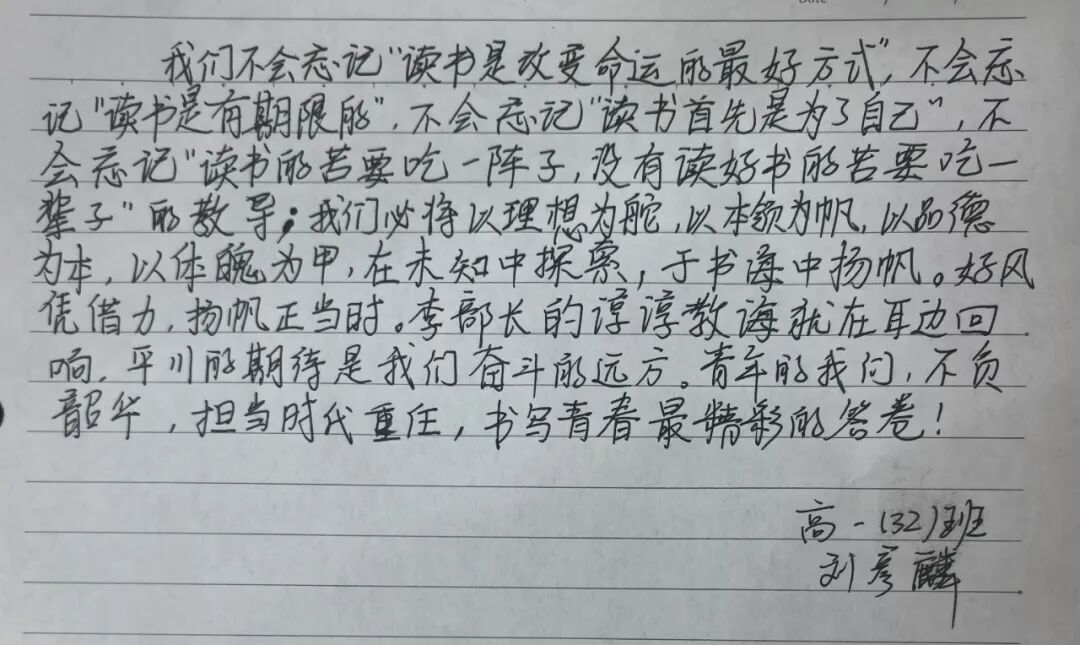 Date
我们不会忘记“读书是改变命运的最好方式”,不会忘
记“读书是有期限的”,不会忘记“读书首先是为了自己”,不
会忘记“读书的苦要吃一阵子,没有读好书的苦要吃一
辈子”的教导;我们必将以理想为舵,以本领为帆,以品德
为本,以体魄为甲,在未知中探索,于书海中扬帆。好风
凭借力,扬帆正当时。李部长的谆谆教诲就在耳边回
响,平川的期待是我们奋斗的远方。青年的我们,不负
韶华,担当时代重任,书写青春最精彩的答卷!
高一(32)班
刘彦麟